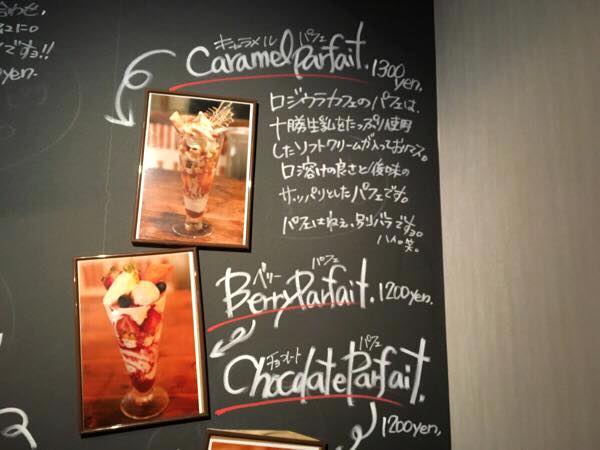 合わせ,
ですョ!!
00yen.
キャラメル パフェ
Caramel Parfait. 1300 yen.
ロジウラカフェのパフェは、
十勝生乳をたっぷり使用
したソフトクリームが入っております。
口溶けの良さと後味の
サッパリとしたパフェです。
パフェはねぇ、別バラですョ。
ハイ。笑。
ベリー パフェ
Berry Parfait. 1200yen.
チョコレート パフェ
Chocolate Parfait.
1200yen.